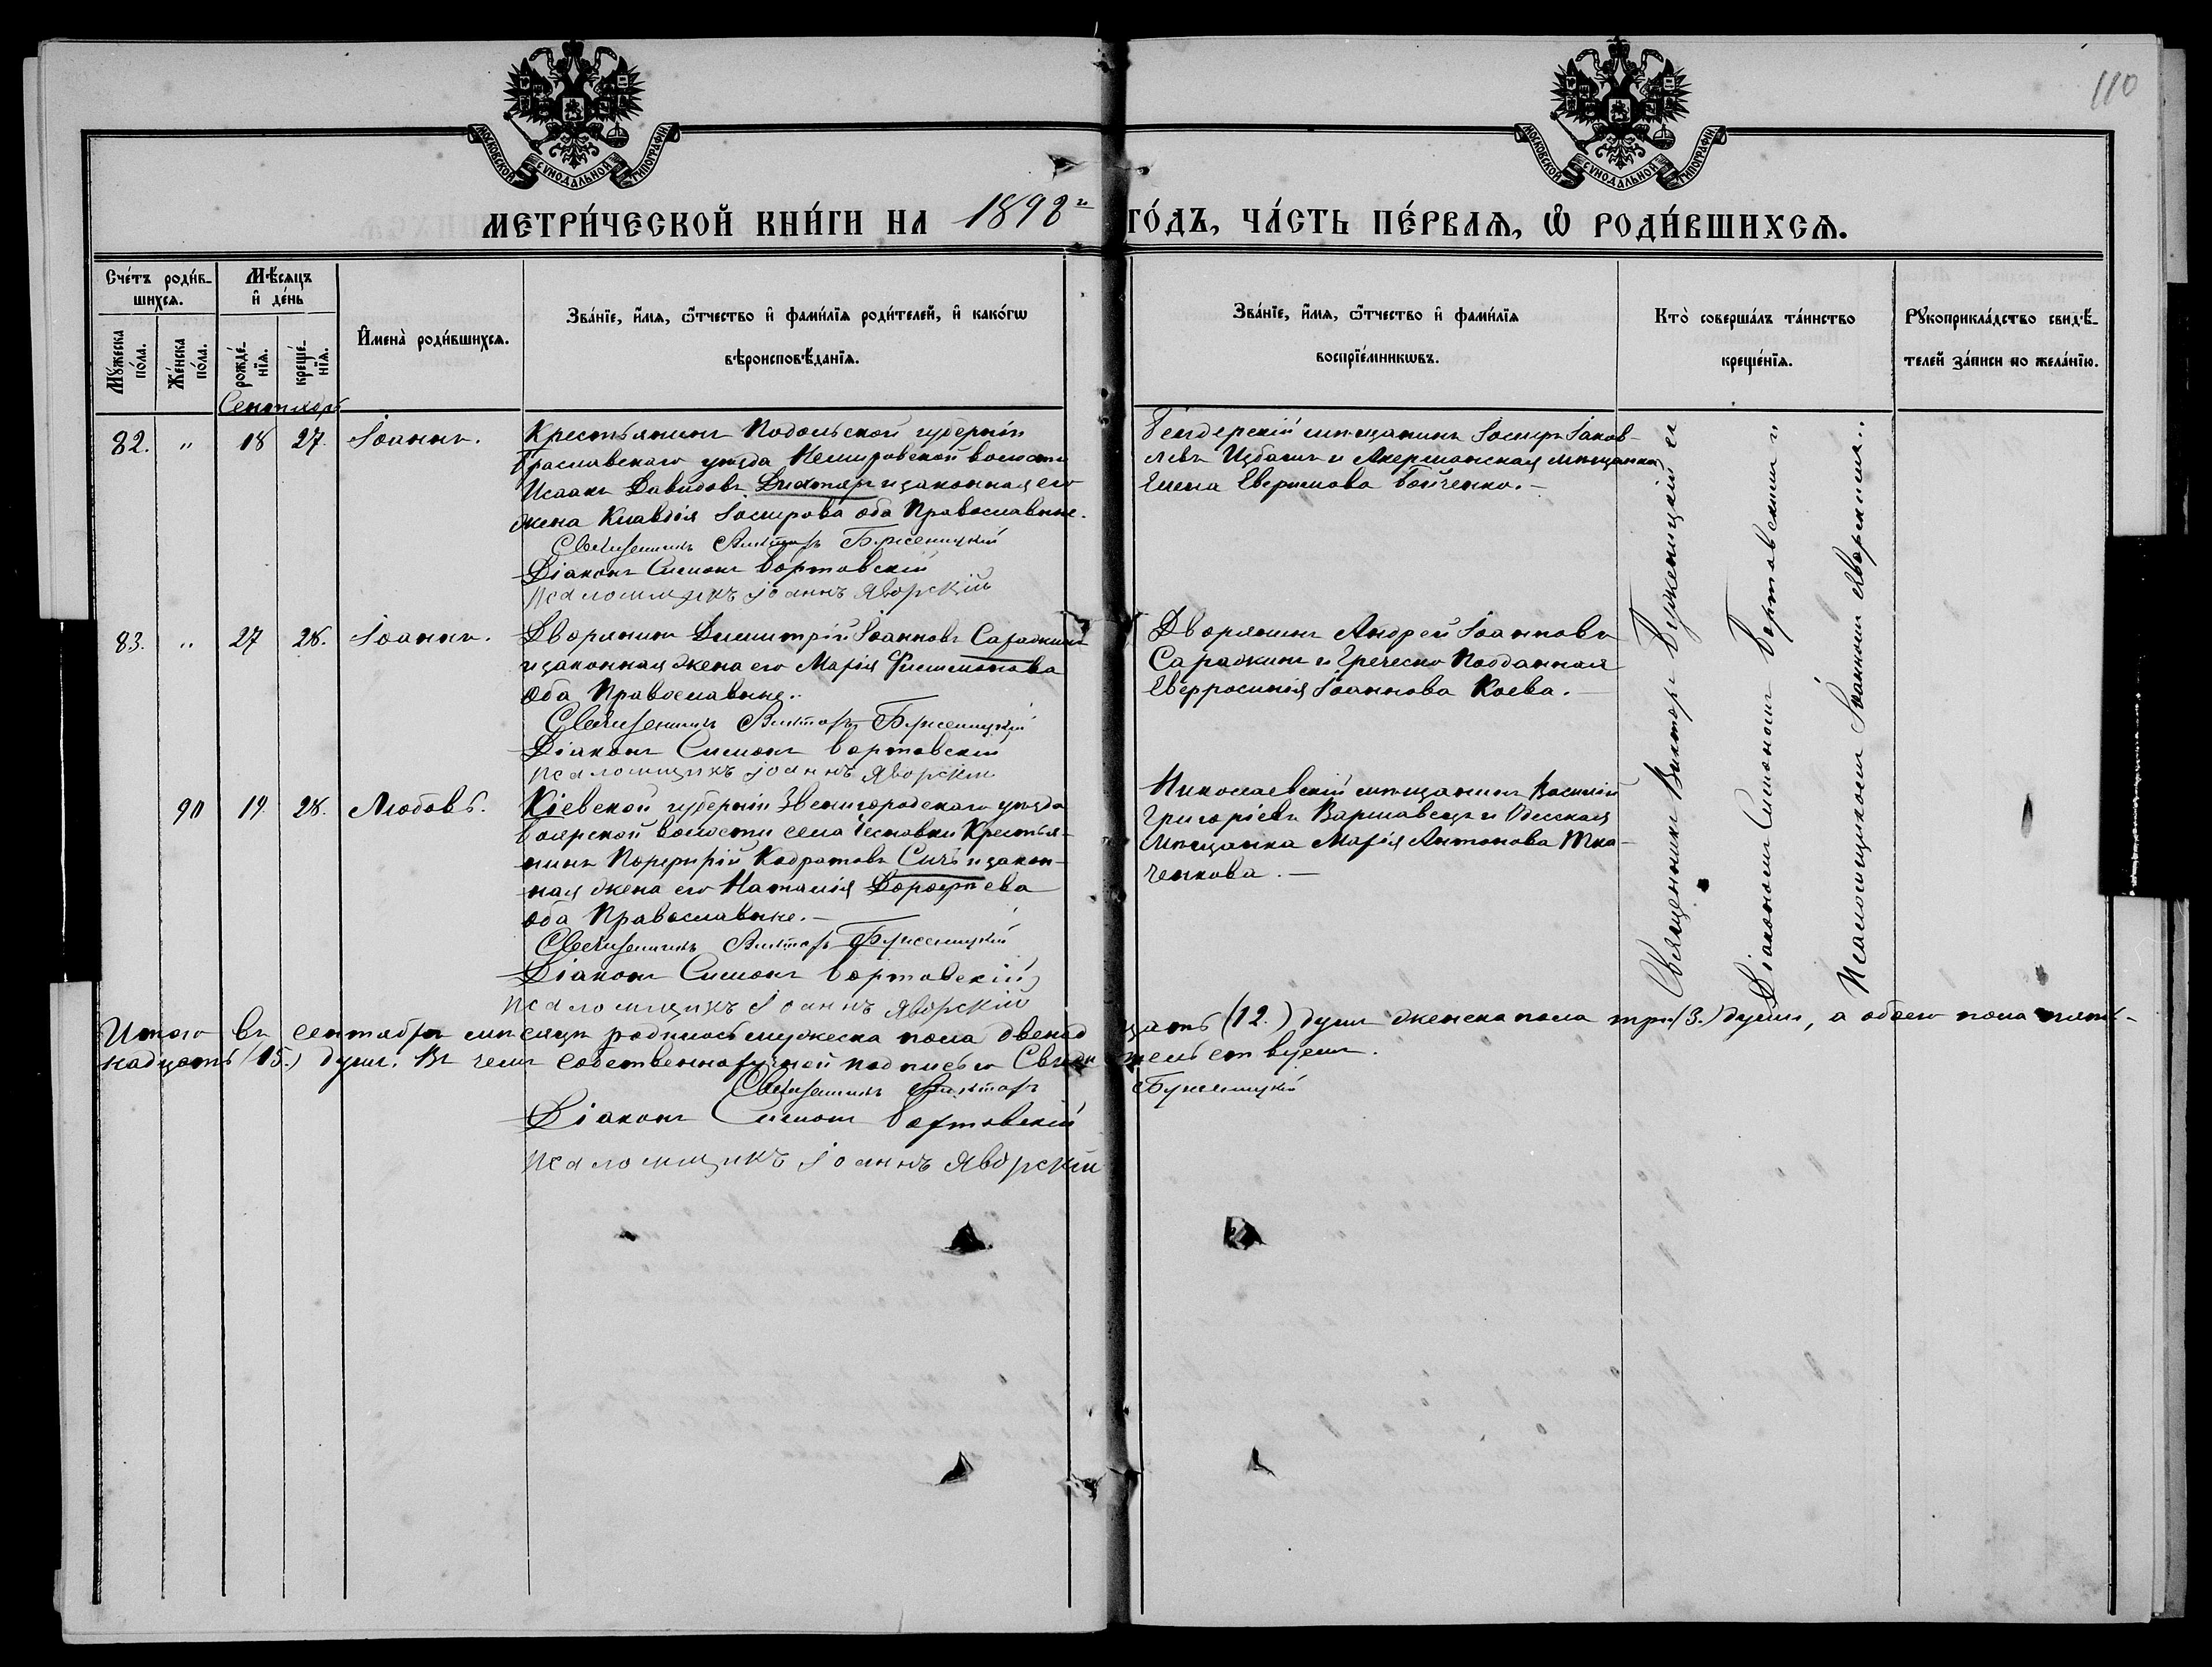 110
МОСКОВСКОЙ СѴНОДАЛЬНОЙ ТИПОГРАФІИ
МОСКОВСКОЙ СѴНОДАЛЬНОЙ ТИПОГРАФІИ
МЕТРИ́ЧЕСКОЙ КНИ́ГИ НА 1898 г ГО́ДЪ, ЧА́СТЬ ПЕ́РВАѦ, Ѡ҆ РОДИ́ВШИХСѦ.
Сче́тъ роди́в-
шихсѧ.
Мѣ́сѧцъ
и҆ де́нь
Мꙋ́жеска по́ла.
Же́нска по́ла.
рожде́-
нїѧ.
креще́-
нїѧ.
И҆мена̀ роди́вшихсѧ.
Зва́нїе, и҆́мѧ, ѻ҆́тчество и҆ фами́лїѧ роди́телей, и҆ како́гѡ
вѣроисповѣ́данїѧ.
Зва́нїе, и҆́мѧ, ѻ҆́тчество и҆ фами́лїѧ
воспрїе́мникѡвъ.
Кто̀ соверша́лъ та́инство
креще́нїѧ.
Рꙋкоприкла́дство свидѣ́-
телей за́писи по жела́нїю.
Сентябрь
82. " 18 27. Іоаннъ.
Крестьянинъ Подольской губерніи
Браславскаго уѣзда Немировской волости
Исаакъ Давидовъ Дихтяръ и законная его
жена Клавдія Іосифова оба Православные.
Священникъ Викторъ Буженицкій
Діаконъ Симонъ Бортовскій
Псаломщикъ Іоаннъ Яворскій
Бендерскій мѣщанинъ Іосифъ Іаков-
левъ Цыбаль и Акерманская мѣщанка
Елена Евфимова Бойченко.—
83. " 27 28. Іоаннъ.
Дворянинъ Димитрій Іоанновъ Сараджинъ
и законная жена его Марія Филимонова
оба Православные..
Священникъ Викторъ Буженицкій
Діаконъ Симонъ Бортовскій
Псаломщикъ Іоаннъ Яворскій
Дворянинъ Андрей Іоанновъ
Сараджинъ и Греческо Подданная
Евфросинія Іоаннова Коева.—
90 19. 28. Любовь.
Кіевской губерніи Звенигородскаго уѣзда
Боярской волости села Тесновки Крестья-
нинъ Порфирій Кодратовъ Сичъ и закон-
ная жена его Наталія Дороѳѣева
оба Православные.—
Священникъ Викторъ Буженицкій
Діаконъ Симонъ Бортовскій
Псаломщикъ Іоаннъ Яворскій
Николаевскій мѣщанинъ Василій
Григоріевъ Варшавецъ и Одесская
Мѣщанка Марія Антонова Тка-
ченкова.—
Священникъ Викторъ Буженицкій съ
Діакономъ Симономъ Бортовскимъ и
Псаломщикомъ Іоанномъ Яворскимъ..
Итого въ сентябрѣ мѣсяцѣ родилось мужеска пола двенадцать (12.) душъ женска пола три (3.) души, а обоего пола пят-
надцать (15.) душъ. Въ чемъ собственноручной подписью Свидѣтельствуемъ.
Священникъ Викторъ Буженицкій
Діаконъ Симонъ Бортовскій
Псаломщикъ Іоаннъ Яворскій